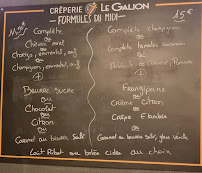 CRÊPERIE LE GALION
- FORMULES DU MIDI -
15€
Complète
ou
Chèvre miel
ou
Champignon, emmental, œuf
Complète champignon
ou
Complète tomates
ou
Beurre Sucre
ou
Chocolat
ou
Citron
ou
Caramel au beurre salé
Frangipane
ou
Crème Citron
ou
Crêpe Flambée
ou
Caramel au beurre salé, glace Vanille
Lait Ribot ou bolée cidre au choix